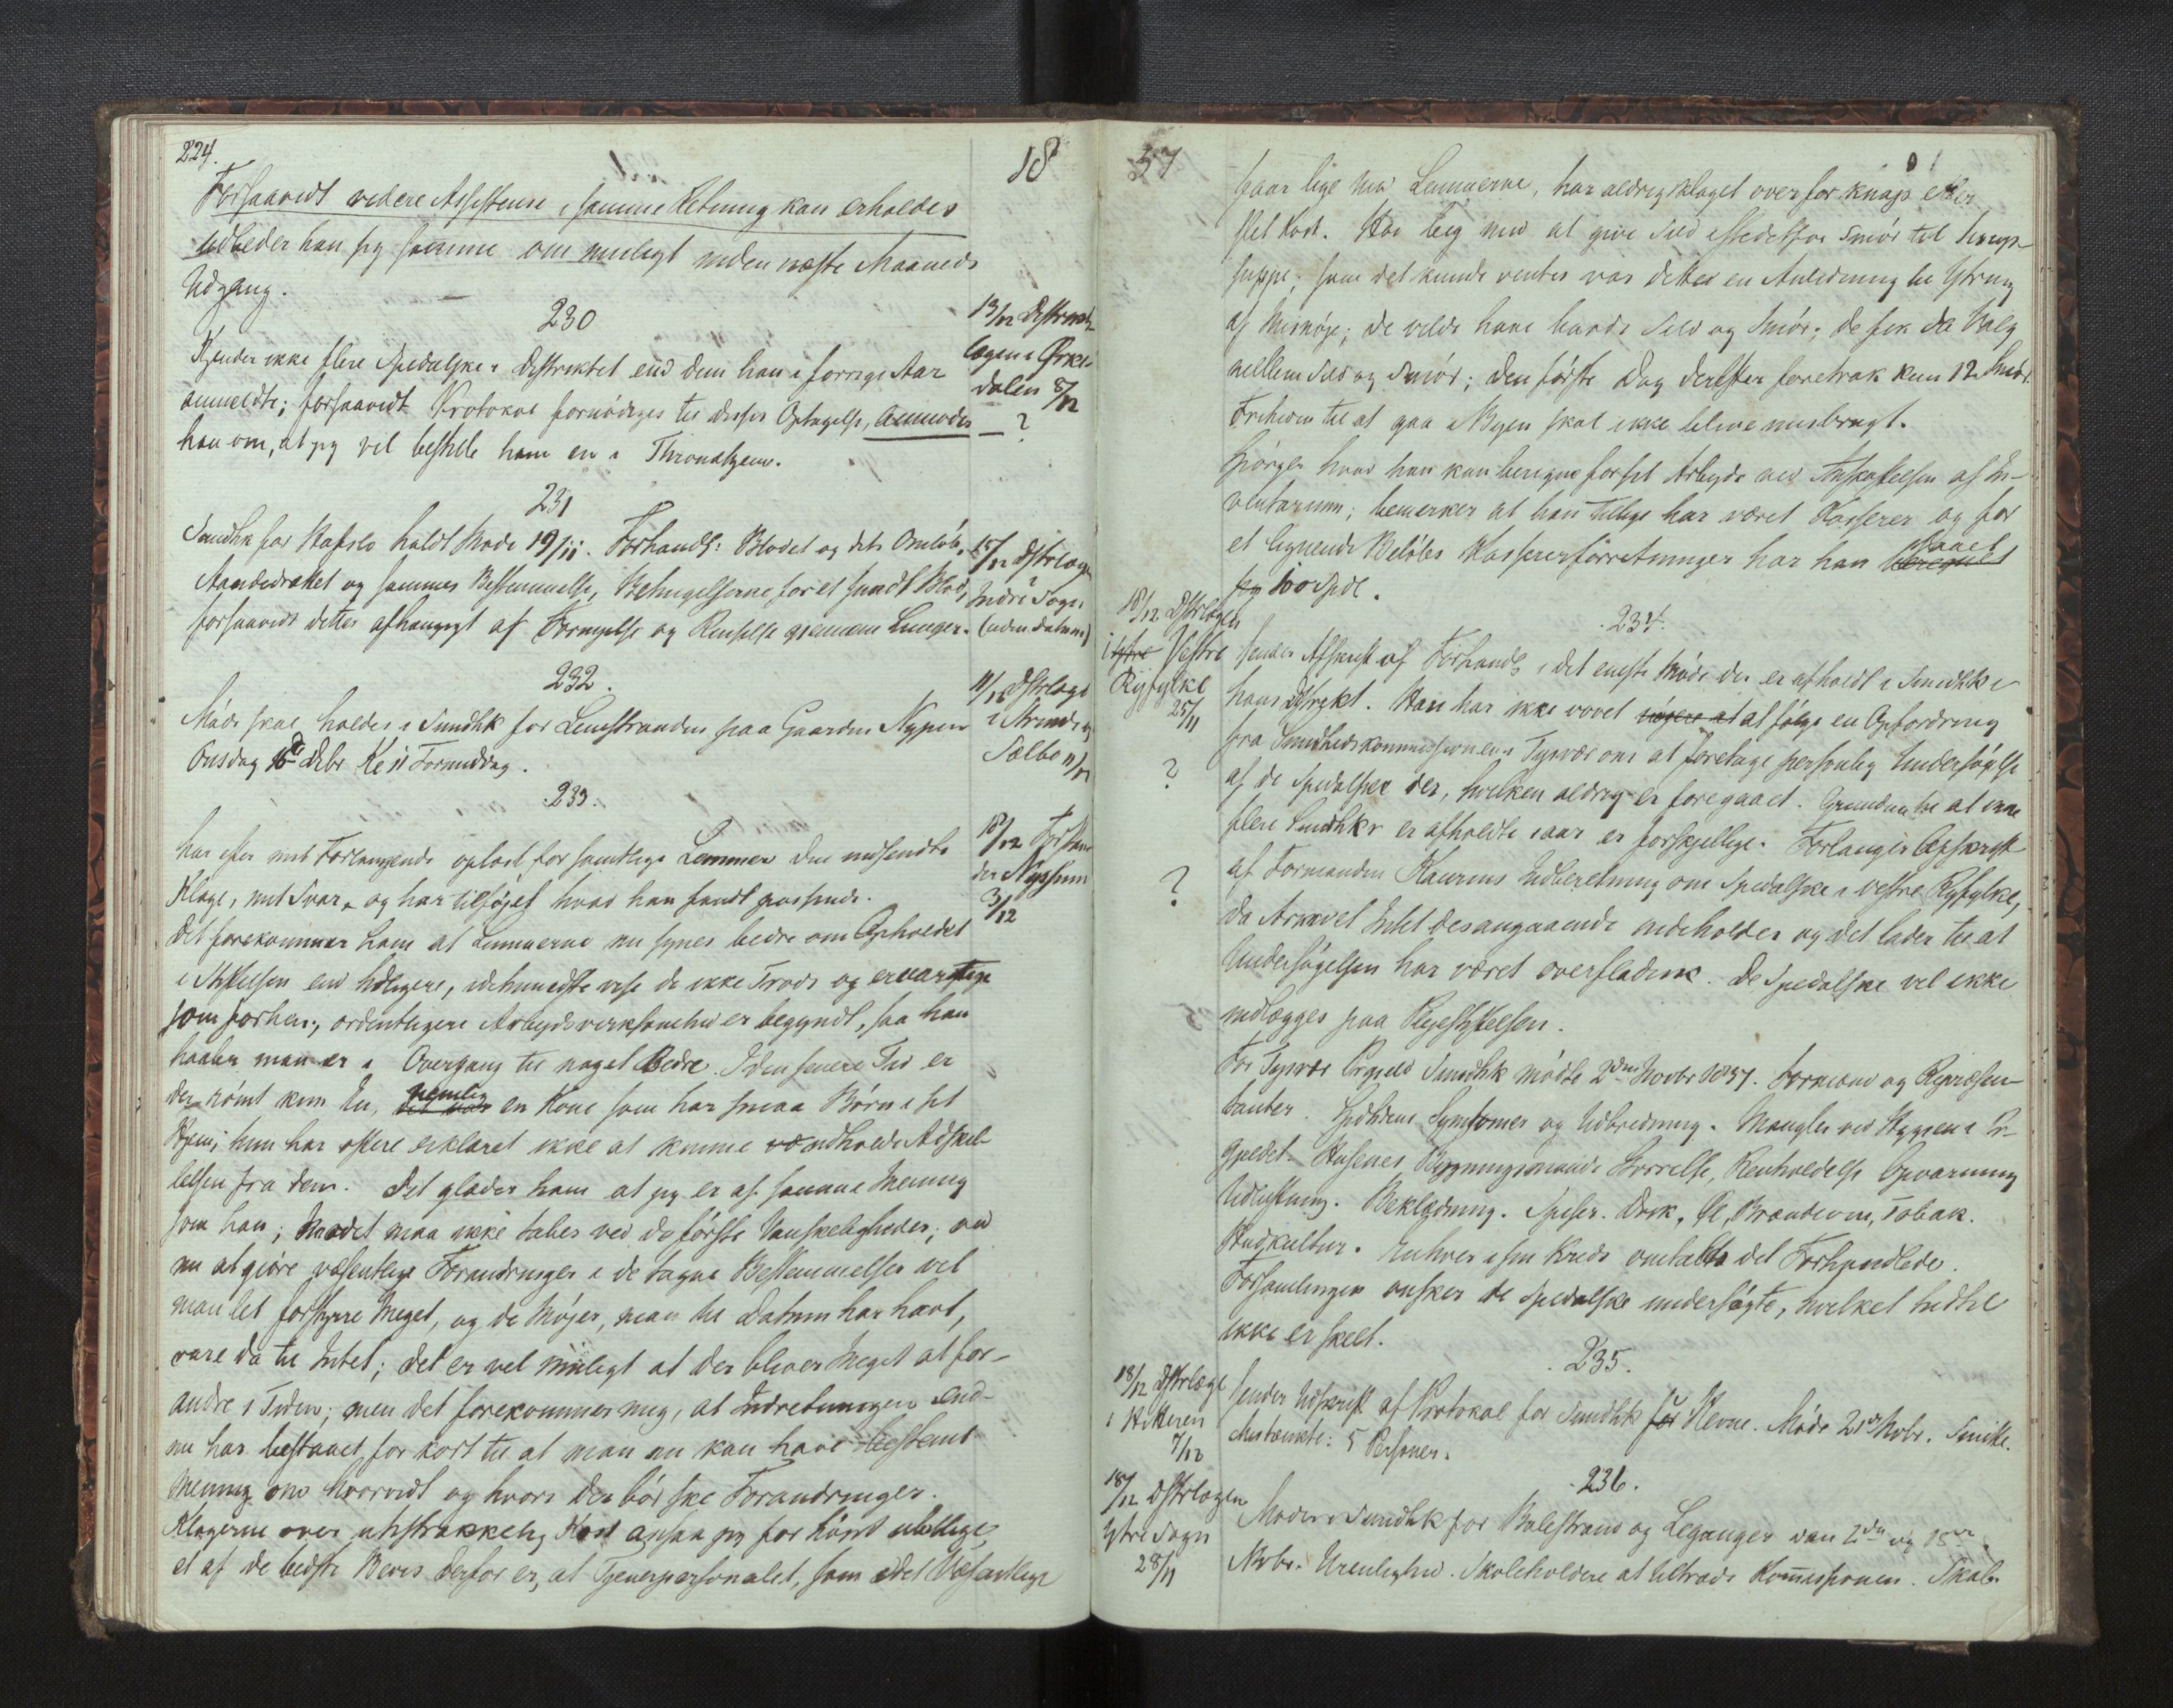 224.
18
Forsaavidt videre Assistense i samme Retning kan erholdes
udbeder han sig samme om muligt inden næste Maaneds
Udgang.
230
13/12 Distrikts-
lægen i Ørke-
dalen 8/12
Kjender ikke flere Spedalske i Distriktet end dem han i forrige Aar
anmeldte; forsaavidt Protokol fornødiges til disses Optagelse, anmoder
han om, at jeg vil bestille ham en i Throndhjem.
— ?
231
15/12 Dstrlægen
Indre Sogn
(uden datum)
Sundhk for Hafslo holdt Møde 19/11. Forhandl: Blodet og dets Omløb,
Aandedrættet og sammes Bestemmelse, Betingelserne for et sundt Blod,
forsaavidt dettes afhængigt af Fornyelse og Renselse gjennem Lunger.
232.
11/12 Dstrlæge
i Strinde og
Sælbo 11/12
Møde skal holdes i Sundhk for Leinstranden paa Gaarden Nypen
Onsdag 16de Dcbr Kl 11 Formiddag.
233.
18/12 Forstan
der Nyssum
3/12
Har efter mit Forlangende oplæst for samtlige Lemmer den indsendte
Klage, mit Svar, og har tilføjet hvad han fandt passende.
Det forekommer ham at Lemmerne nu synes bedre om Opholdet
i Stiftelsen end tidligere, idetmindste vise de ikke Trods og
som forhen; ordentligere Arbejdsvirksomhed er begyndt, saa han
haaber man er i Overgang til noget Bedre. I den senere Tid er
der rømt kun En, nemlig en Kone som har smaa Børn i sit
Hjem; hun har oftere erklæret ikke at kunne udholde Adskil-
lelsen fra dem. Det glæder ham at jeg er af samme Mening
som han; Modet maa ikke tabes ved de første Vanskeligheder; ved
nu at gjøre væsentlige Forandringer i de tagne Bestemmelser vil
man let forstyrre Meget, og de Møjer, man til Datum har havt,
være da til Intet; det er vel muligt at der bliver Meget at for-
andre i Tiden; men det forekommer mig, at Indretningen end-
nu har bestaaet for kort til at man nu kan have bestemt
Mening om hvorvidt og hvori der bør ske Forandringer.
Klagerne over utilstrækkelig Kost ansaa jeg for højst ubillige,
et af de bedste Bevis derfor er, at Tjenerpersonalet, som i det Væsentlige
57
spiser lige med Lemmerne, har aldrig klaget over for knap eller
slet Kost. Han begyndte med at give Sild istedetfor Smør til
suppe; som det kunde ventes var dette en Anledning til Yttring
af Misnøje; de vilde have baade Sild og Smør; de fik da Valg
mellem Sild og Smør; den første Dag derefter foretrak kun 12 Smør.
Friheden til at gaa i Byen skal ikke blive misbrugt.
Spørger hvad han kan beregne for sit Arbejde ved Anskaffelsen af In-
ventarium; bemærker at han tillige har været Kasserer og for
et lignende Beløbs Kassererforretninger har han faaet beregnet
sig 100 Spdl.
234.
18/12 Dstrlægen
i Ytre Vestre
Ryfylke
25/11
Sender Afskrift af Forhandl i det eneste Møde der er afholdt i Sundhk i
hans Distrikt. Han har ikke vovet at følge en Opfordring
fra Sundhedskommissionen i Tysvær om at foretage personlig Undersøgelse
?
af de Spedalske der, hvilken aldrig er foregaaet. Grundene til at ikke
flere Sundhkr er afholdte i aar er forskjellige. Forlanger Afskrift
?
af Formanden Kaurins Indberetning om Spedalske i vestre Ryfylke,
da Arkivet Intet desangaaende indeholder og det lader til at
Undersøgelsen har været overfladisk. De Spedalske vil ikke
indlægges paa Plejestiftelsen.
For Tysvær Prgjeld Sundhk mødte 2den Novbr 1857. Formænd og Repræsen-
tanter. Spdskens Symtomer og Udbredning. Mangler ved Hygiene i Pr-
gjeldet. Husenes Bygningsmaade Størrelse, Renholdelse Opvarmning
Udluftning. Beklædning. Spiser. Drik, Øl, Brændeviin, Tobak.
Hudkultur. Enhver i sin Kreds omtalte det Forhandlede.
Forsamlingen ønsker de Spedalske undersøgte, hvilket hidtil
ikke er skeet.
235.
18/12 Dstrlæge
i Hitteren
7/12
Sender Udskrift af Protokol for Sundhk for Hevne. Møde 21de Novbr.
Mistænkte: 5 Personer.
236.
18/12 Dstrlægen
Ytre Sogn
28/11
Møder i Sundhk for Balestrand og Leganger den 2den og 15de
Novbr. Urenlighed. Skoleholdere at tiltræde Kommissionen. Skab.